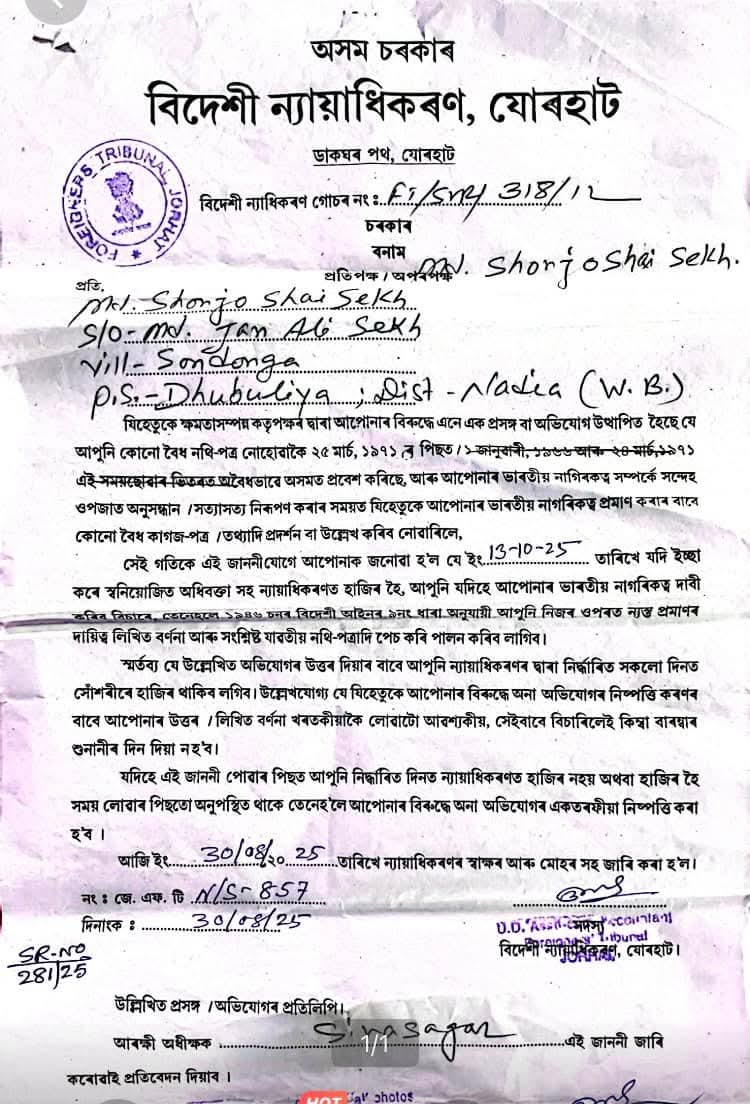 অসম চৰকাৰ
বিদেশী ন্যায়াধিকৰণ, যোৰহাট
ডাকঘৰ পথ, যোৰহাট
FOREIGNERS TRIBUNAL JORHAT
বিদেশী ন্যাধিকৰণ গোচৰ নং : 318/12
চৰকাৰ
বনাম
প্ৰতিপক্ষ / অপৰপক্ষ Md. Shonjo Shai Sekh.
প্ৰতি,
Md. Shonjo Shai Sekh
S/O- Md. Jan Ali Sekh
Vill- Sondonga
P.S.- Dhubuliya ; Dist - Nadia (W. B.)
যিহেতুকে ক্ষমতাসম্পন্ন কতৃপক্ষৰ দ্বাৰা আপোনাৰ বিৰুদ্ধে এনে এক প্ৰসঙ্গ বা অভিযোগ উত্থাপিত হৈছে যে
আপুনি কোনো বৈধ নথি-পত্ৰ নোহোৱাকৈ ২৫ মাৰ্চ, ১৯৭১ ৰ পিছত / ১ জানুৱাৰী, ১৯৬৬ আৰু ২৪ মাৰ্চ, ১৯৭১
এই সময়ছোৱাৰ ভিতৰত অবৈধভাৱে অসমত প্ৰবেশ কৰিছে, আৰু আপোনাৰ ভাৰতীয় নাগিৰকত্ব সম্পৰ্কে সন্দেহ
উপজাত অনুসন্ধান / সত্যাসত্য নিৰূপণ কৰাৰ সময়ত যিহেতুকে আপোনাৰ ভাৰতীয় নাগৰিকত্ব প্ৰমাণ কৰাৰ বাবে
কোনো বৈধ কাগজ-পত্ৰ / তথ্যাদি প্ৰদৰ্শন বা উল্লেখ কৰিব নোৱাৰিলে,
সেই গতিকে এই জাননীযোগে আপোনাক জনোৱা হ'ল যে ইং 13-10-25 তাৰিখে যদি ইচ্ছা
কৰে স্বনিয়োজিত অধিবক্তা সহ ন্যায়াধিকৰণত হাজিৰ হৈ, আপুনি যদিহে আপোনাৰ ভাৰতীয় নাগৰিকত্ব দাবী
কৰিব বিচাৰে, তেনেহলে ১৯৪৬ চনৰ বিদেশী আইনৰ ৯নং ধাৰা অনুযায়ী আপুনি নিজৰ ওপৰত ন্যস্ত প্ৰমাণৰ
দায়িত্ব লিখিত বৰ্ণনা আৰু সংশ্লিষ্ট যাবতীয় নথি-পত্ৰাদি পেচ কৰি পালন কৰিব লাগিব।
স্মৰ্তব্য যে উল্লেখিত অভিযোগৰ উত্তৰ দিয়াৰ বাবে আপুনি ন্যায়াধিকৰণৰ দ্বাৰা নিৰ্দ্ধাৰিত সকলো দিনত
সোঁশৰীৰে হাজিৰ থাকিব লগিব। উল্লেখযোগ্য যে যিহেতুকে আপোনাৰ বিৰুদ্ধে অনা অভিযোগৰ নিষ্পত্তি কৰণৰ
বাবে আপোনাৰ উত্তৰ / লিখিত বৰ্ণনা খৰতকীয়াকৈ লোৱাটো আৱশ্যকীয়, সেইবাবে বিচাৰিলেই কিম্বা বাৰম্বাৰ
শুনানীৰ দিন দিয়া নহ'ব।
যদিহে এই জাননী পোৱাৰ পিছত আপুনি নিৰ্দ্ধাৰিত দিনত ন্যায়াধিকৰণত হাজিৰ নহয় অথবা হাজিৰ হৈ
সময় লোৱাৰ পিছতো অনুপস্থিত থাকে তেনেহ'লে আপোনাৰ বিৰুদ্ধে অনা অভিযোগৰ একতৰফীয়া নিষ্পত্তি কৰা
হ'ব ।
আজি ইং 30/08/২০ 25 তাৰিখে ন্যায়াধিকৰণৰ স্বাক্ষৰ আৰু মোহৰ সহ জাৰি কৰা হ'ল।
নং : জে. এফ. টি N/S- 857
দিনাংক : 30/08/25
সদস্য
বিদেশী ন্যায়াধিকৰণ, যোৰহাট।
SR-NO
281/25
উল্লিখিত প্ৰসঙ্গ / অভিযোগৰ প্ৰতিলিপি।
আৰক্ষী অধীক্ষক Sivasagar এই জাননী জাৰি
1/1
কৰোৱাই প্ৰতিবেদন দিয়াব ।
HOT
photos